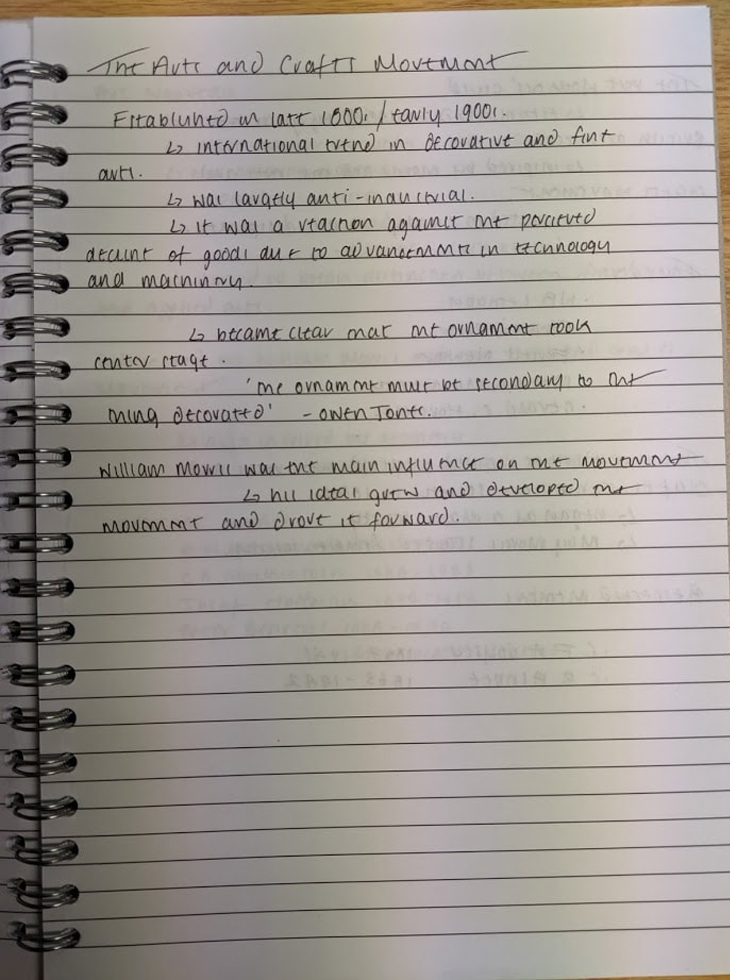 The Arts and Crafts Movement
Established in late 1800s / early 1900s.
↳ international trend in decorative and fine
arts.
↳ was largely anti-industrial.
↳ it was a reaction against the percieved
decline of goods due to advancements in technology
and machinery.
↳ became clear that the ornament took
center stage.
'The ornament must be secondary to the
thing decorated' - Owen Jones.
William Morris was the main influence on the movement
↳ his ideas grew and developed the
movement and drove it forward.